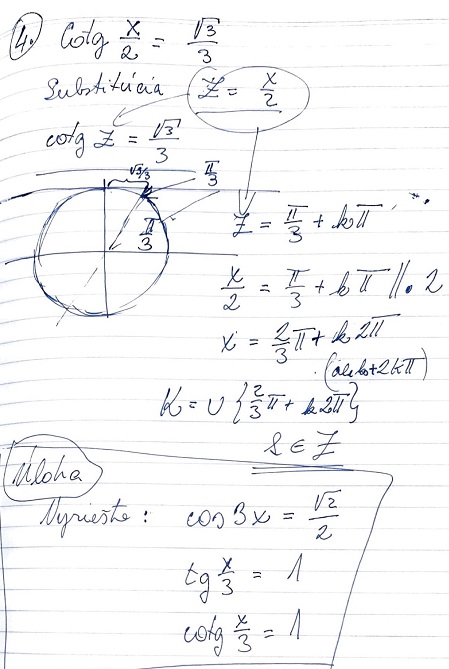 4. Cotg x/2 = √3/3
Substitúcia Z = x/2
cotg Z = √3/3
√3/3 π/3
π/3 Z = π/3 + kπ
x/2 = π/3 + kπ //.2
x = 2/3π + k2π
(alebo+2kπ)
K = ∪ {2/3π + k2π}
k ∈ Z
Úloha
Vyriešte: cos 3x = √2/2
tg x/3 = 1
cotg x/3 = 1